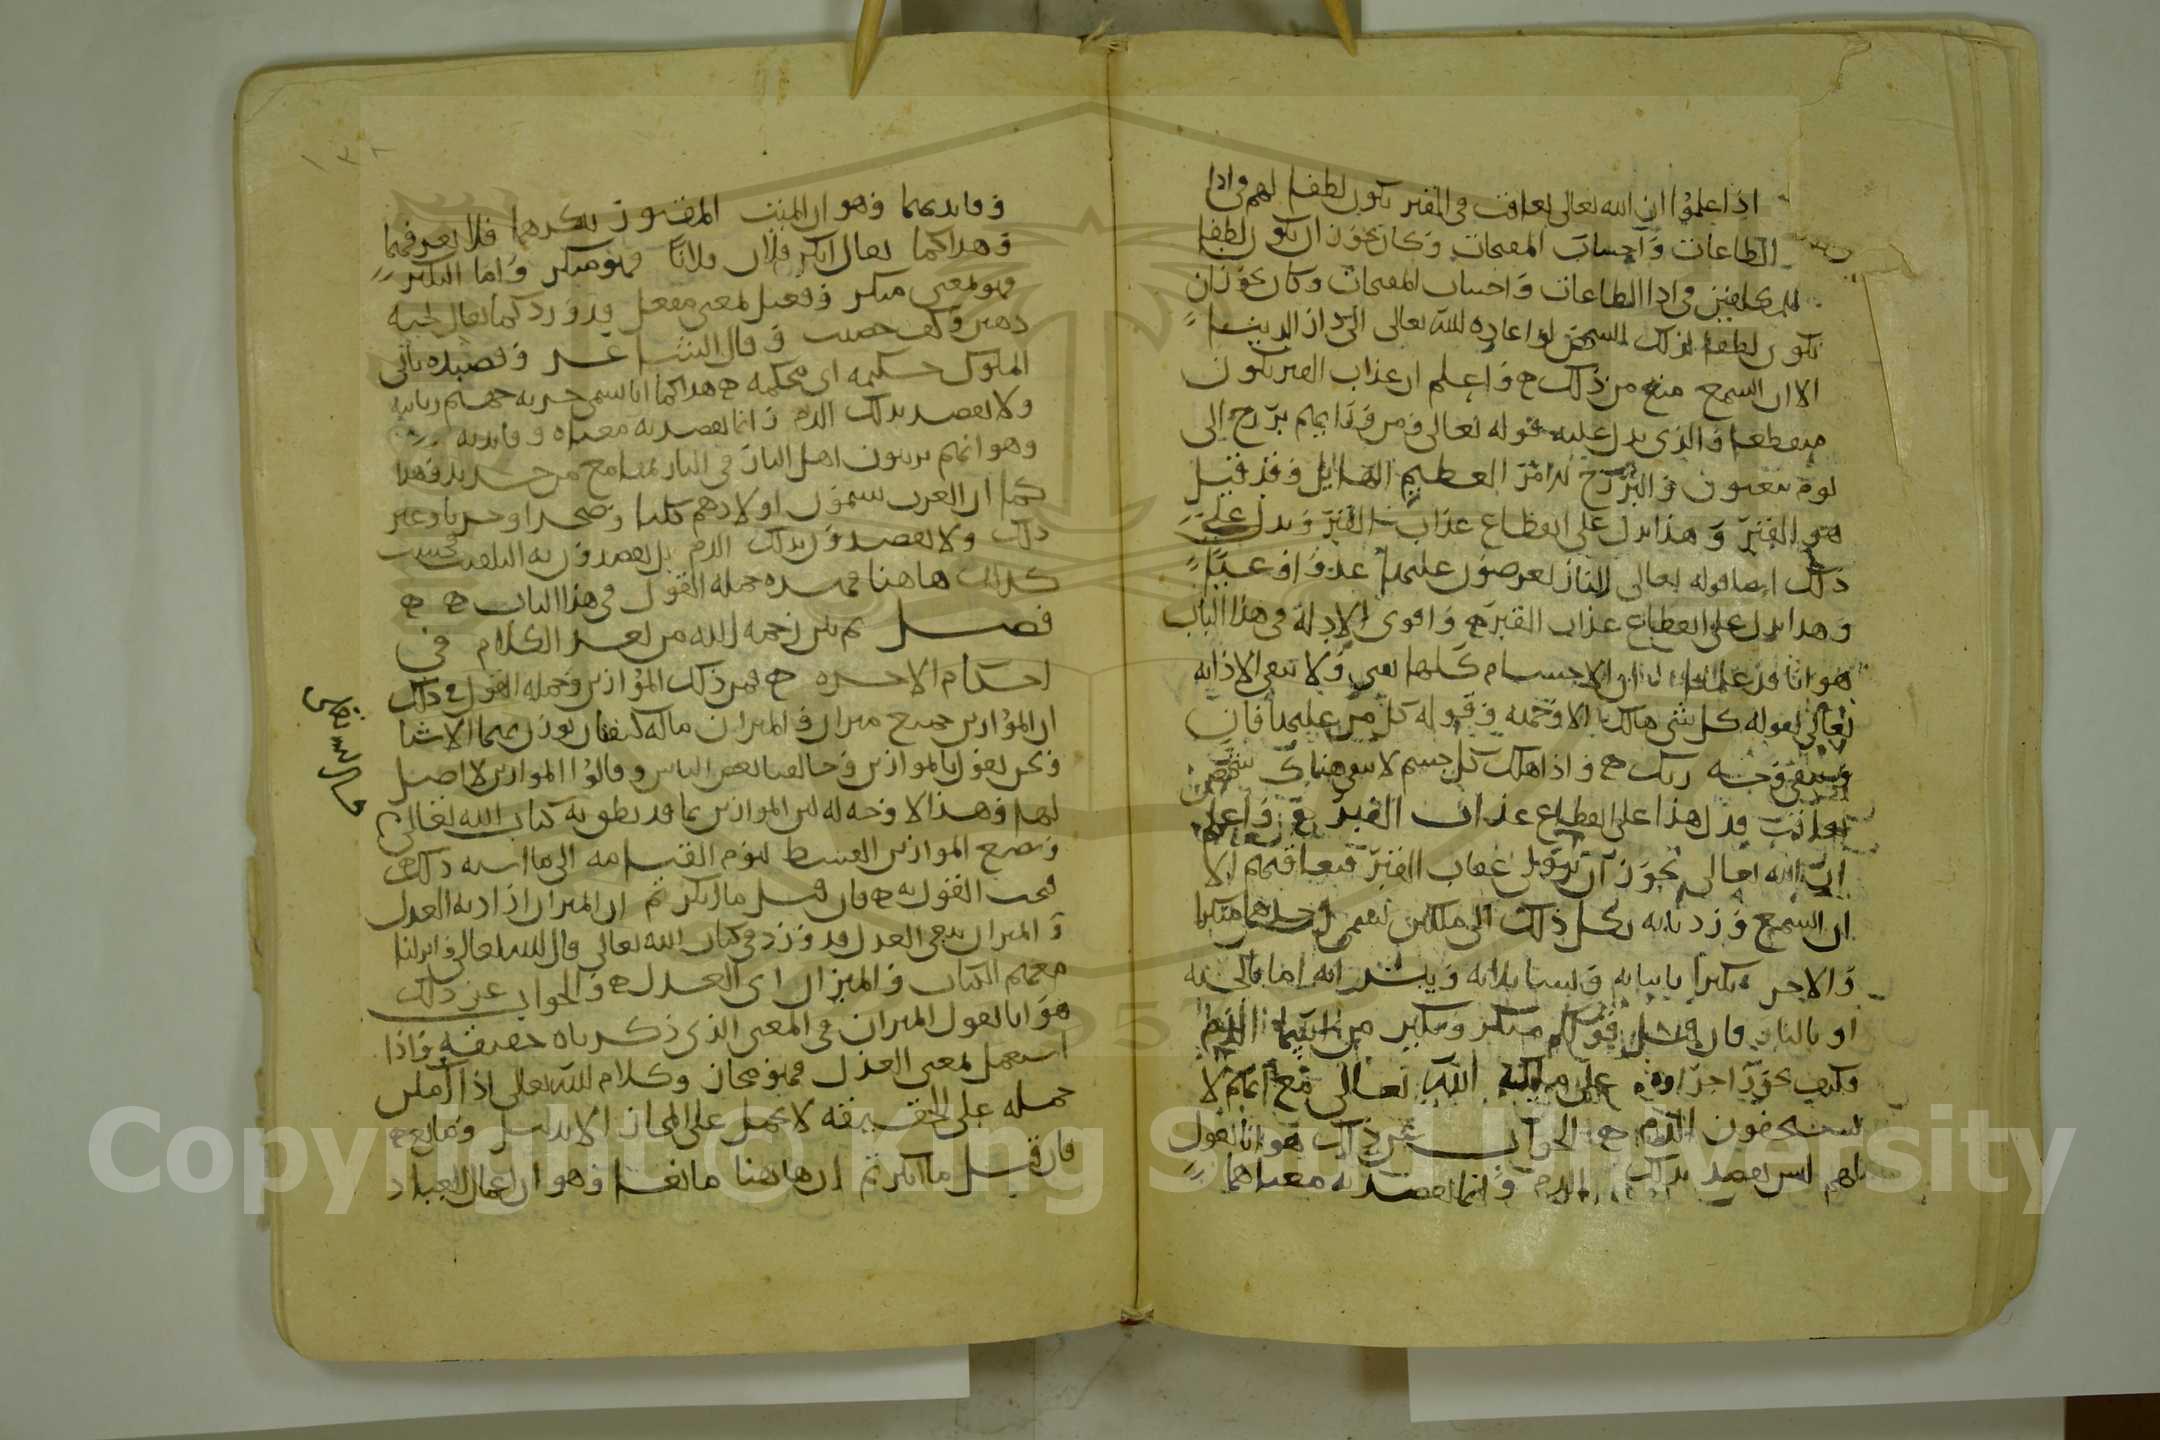 اذا علموا ان الله تعالى يعاقب في القبر يكون لطفا لهم في ادا
الطاعات واجتناب المقبحات وكان يجوز ان يكون لطفا
للمكلفين في ادا الطاعات واجتناب المقبحات وكان يجوز ان
يكون لطفا لذلك المستحق لو اعاده الله تعالى الى دار الدنيا
الا ان السمع منع من ذلك ه واعلم ان عذاب القبر يكون
منقطعا والذي يدل عليه قوله تعالى ومن ورايهم برزخ الى
يوم يبعثون والبرزخ الامر العظيم الهايل وقد قيل
هو القبر وهذا يدل على انقطاع عذاب القبر ويدل على
ذلك ايضا قوله تعالى النار يعرضون عليها غدوا وعشيا
وهذا يدل على انقطاع عذاب القبر ه واقوى الادلة في هذا الباب
هو انا قد علمنا ان الاجسام كلها تفنى ولا يبقى الا ذاته
تعالى لقوله كل شي هالك الا وجهه وقوله كل من عليها فان
ويبقى وجه ربك ه واذا هلك كل جسم لا يبقى هناك شخص
يعاقب فدل هذا على انقطاع عذاب القبر واعلم
ان الله تعالى يجوز ان يتولى عقاب القبر فيعاقبهم الا
ان السمع ورد بانه يكل ذلك الى ملكين يسمى احدهما منكرا
والاخر نكيرا ياتيانه ويسايلانه ويبشرانه اما بالجنه
او بالنار فان قيل قولكم منكر ونكير من اسما الذم
وكيف يجوز اجراوه على ملايكة الله تعالى مع انهم لا
يستحقون الذم ه الجواب عن ذلك هو انا نقول
لهم ليس نقصد بذلك الذم وانما نقصد به معناهما
وفايدتهما وهو ان الميت المقبور ينكرهما فلا يعرفهما
وهذا كما يقال انكر فلان فلانا فهو منكر واما النكير
فهو بمعنى منكر وفعيل بمعنى مفعل قد ورد كما يقال لحية
دهين وكف خضيب وقال الشاعر وقصيدة تاتي
الملوك حكيمة اي محكمة ه هذا كما انا نسمي خزنة جهنم زبانية
ولا نقصد بذلك الذم وانما نقصد به معناه وفايدته
وهو انهم يزبنون اهل النار في النار بمقامع من حديد وهذا
كما ان العرب يسمون اولادهم كلبا وصخرا وحربا وغير
ذلك ولا يقصدون بذلك الذم بل يقصدون به اللقب كذلك
هاهنا فهذه جملة القول في هذا الباب ه ه
فصل ثم بين رحمه الله من بعد الكلام في
احكام الاخره ه فمن ذلك الموازين وجملة القول في ذلك
ان الموازين جميع ميزان والميزان ماله كفتان يوزن بهما الاشيا
ونحن نقول بالموازين وخالفنا بعض الناس وقالوا الموازين لا اصل
لها وهذا لا وجه له لان الموازين مما قد نطق به كتاب الله تعالى
ونضع الموازين القسط ليوم القيامه الى ما اشبه ذلك
فيجب القول به ه فان قيل ما انكرتم ان الميزان اراد به العدل
والميزان بمعنى العدل قد ورد في كتاب الله تعالى قال الله تعالى وانزلنا
معهم الكتاب والميزان اي العدل ه والجواب عن ذلك
هو انا نقول الميزان في المعنى الذي ذكرناه حقيقه واذا
استعمل بمعنى العدل فهو مجاز وكلام الله تعالى اذا امكن
حمله على الحقيقه لا يحمل على المجاز الا بدليل ومانع ه
فان قيل ما انكرتم ان هاهنا مانعا وهو ان اعمال العباد